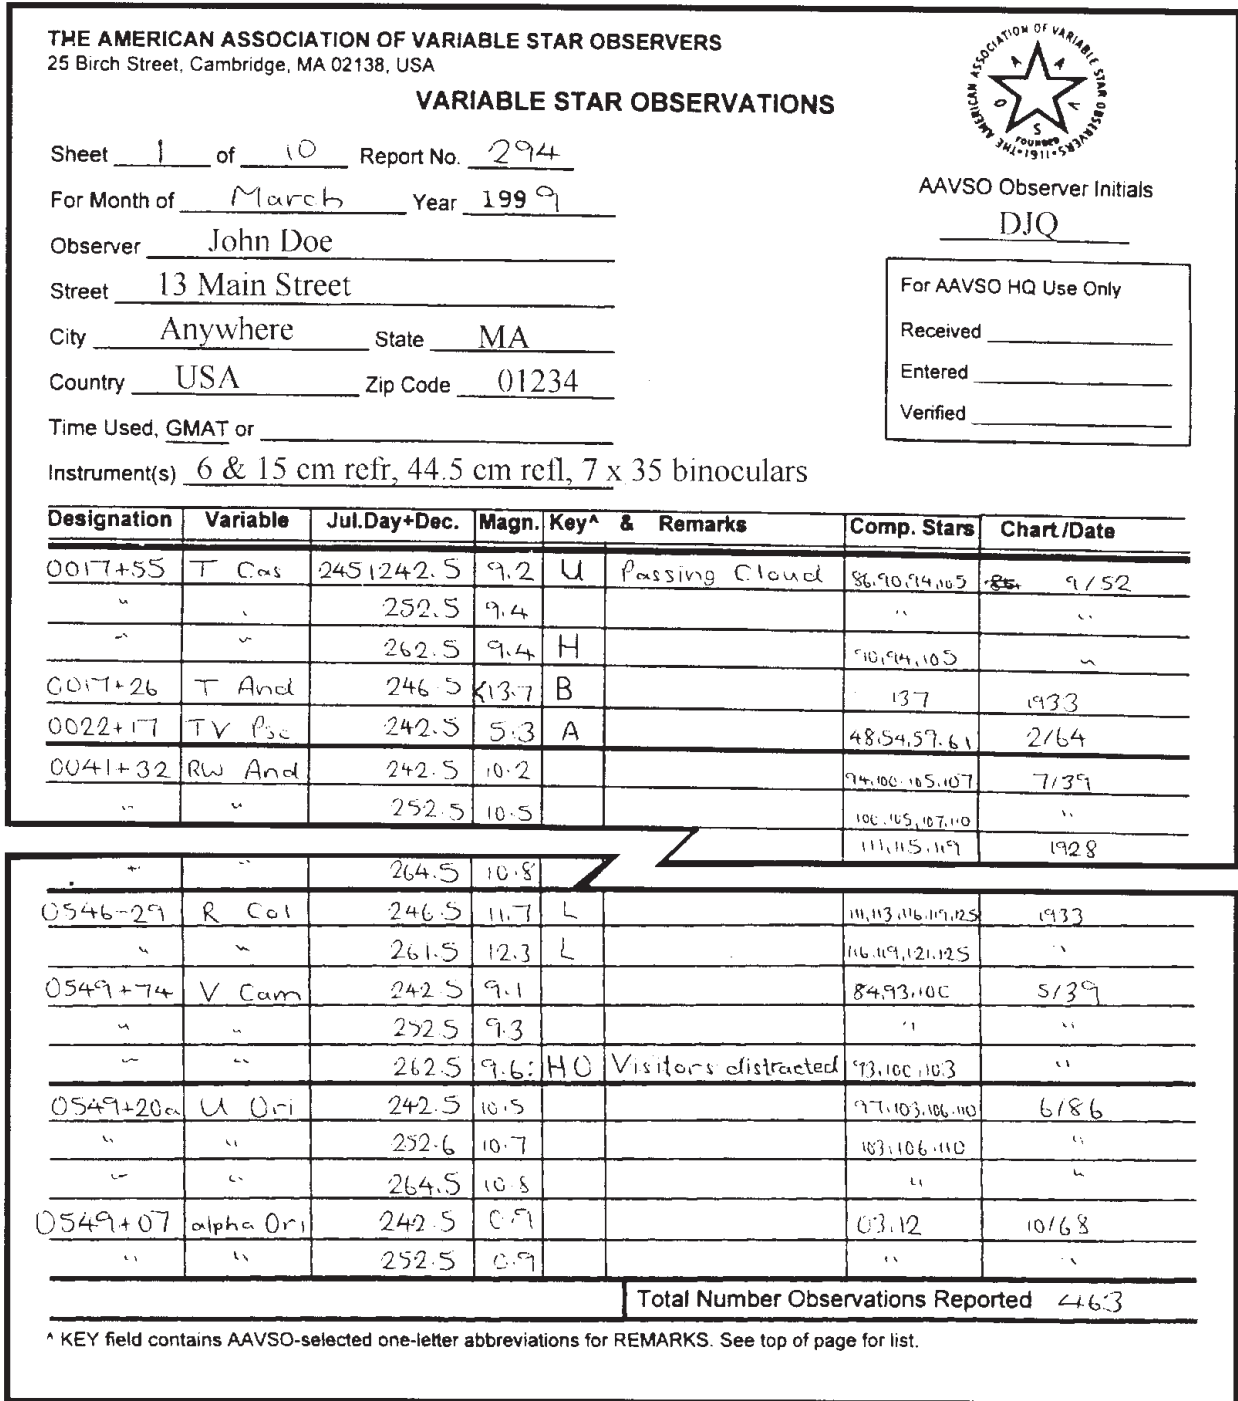 THE AMERICAN ASSOCIATION OF VARIABLE STAR OBSERVERS
25 Birch Street, Cambridge, MA 02138, USA
VARIABLE STAR OBSERVATIONS
THE AMERICAN ASSOCIATION OF VARIABLE STAR OBSERVERS • 1911 •
A A V S O
FOUNDED
Sheet 1 of 10 Report No. 294
For Month of March Year 1999
AAVSO Observer Initials
DJQ
Observer John Doe
Street 13 Main Street
City Anywhere State MA
Country USA Zip Code 01234
Time Used, GMAT or
For AAVSO HQ Use Only
Received
Entered
Verified
Instrument(s) 6 & 15 cm refr, 44.5 cm refl, 7 x 35 binoculars
Designation Variable Jul.Day+Dec. Magn. Key^ & Remarks Comp. Stars Chart/Date
0017+55 T Cas 2451242.5 9.2 U Passing Cloud 86,90,94,105 9/52
" " 252.5 9.4 " "
" " 262.5 9.4 H 90,94,105 "
0017+26 T And 246.5 <13.7 B 137 1933
0022+17 TV Psc 242.5 5.3 A 48,54,57,61 2/64
0041+32 RW And 242.5 10.2 94,100,105,107 7/39
" " 252.5 10.5 100,105,107,110 "
111,115,119 1928
" " 264.5 10.8
0546-29 R Col 246.5 11.7 L 111,113,116,119,125 1933
" " 261.5 12.3 L 116,119,121,125 "
0549+74 V Cam 242.5 9.1 84,93,100 5/39
" " 252.5 9.3 " "
" " 262.5 9.6: HO Visitors distracted 93,100,103 "
0549+20a U Ori 242.5 10.5 97,103,106,110 6/86
" " 252.6 10.7 103,106,110 "
" " 264.5 10.8 " "
0549+07 alpha Ori 242.5 0.9 03,12 10/68
" " 252.5 0.9 " "
Total Number Observations Reported 463
^ KEY field contains AAVSO-selected one-letter abbreviations for REMARKS. See top of page for list.